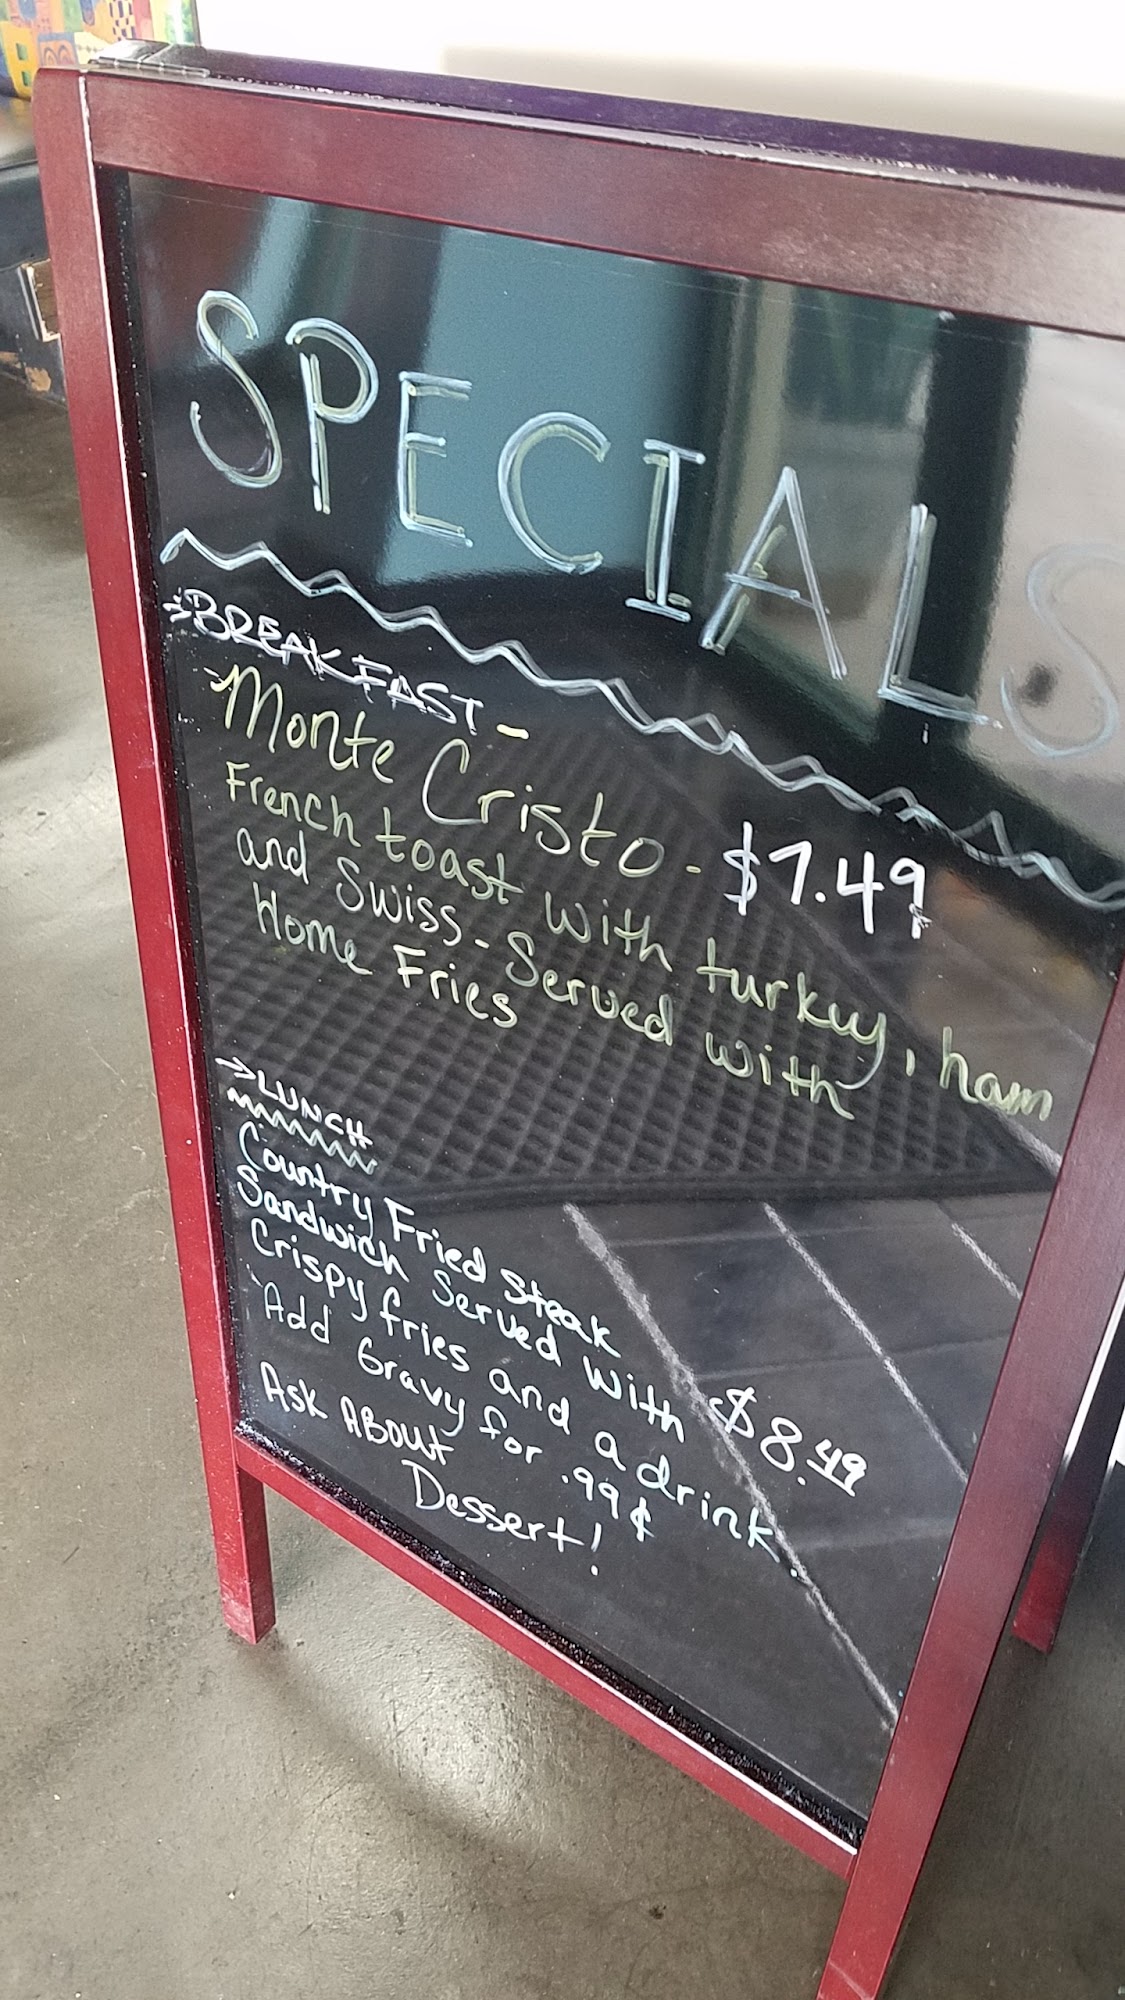 SPECIALS
→BREAKFAST -
Monte Cristo - $7.49
French toast with turkuy, ham
and Swiss - Served with
Home Fries
→LUNCH
Country Fried Steak
Sandwich Served With $8.49
Crispy fries and a drink.
Add Gravy for .99¢
Ask ABOUt
Dessert!